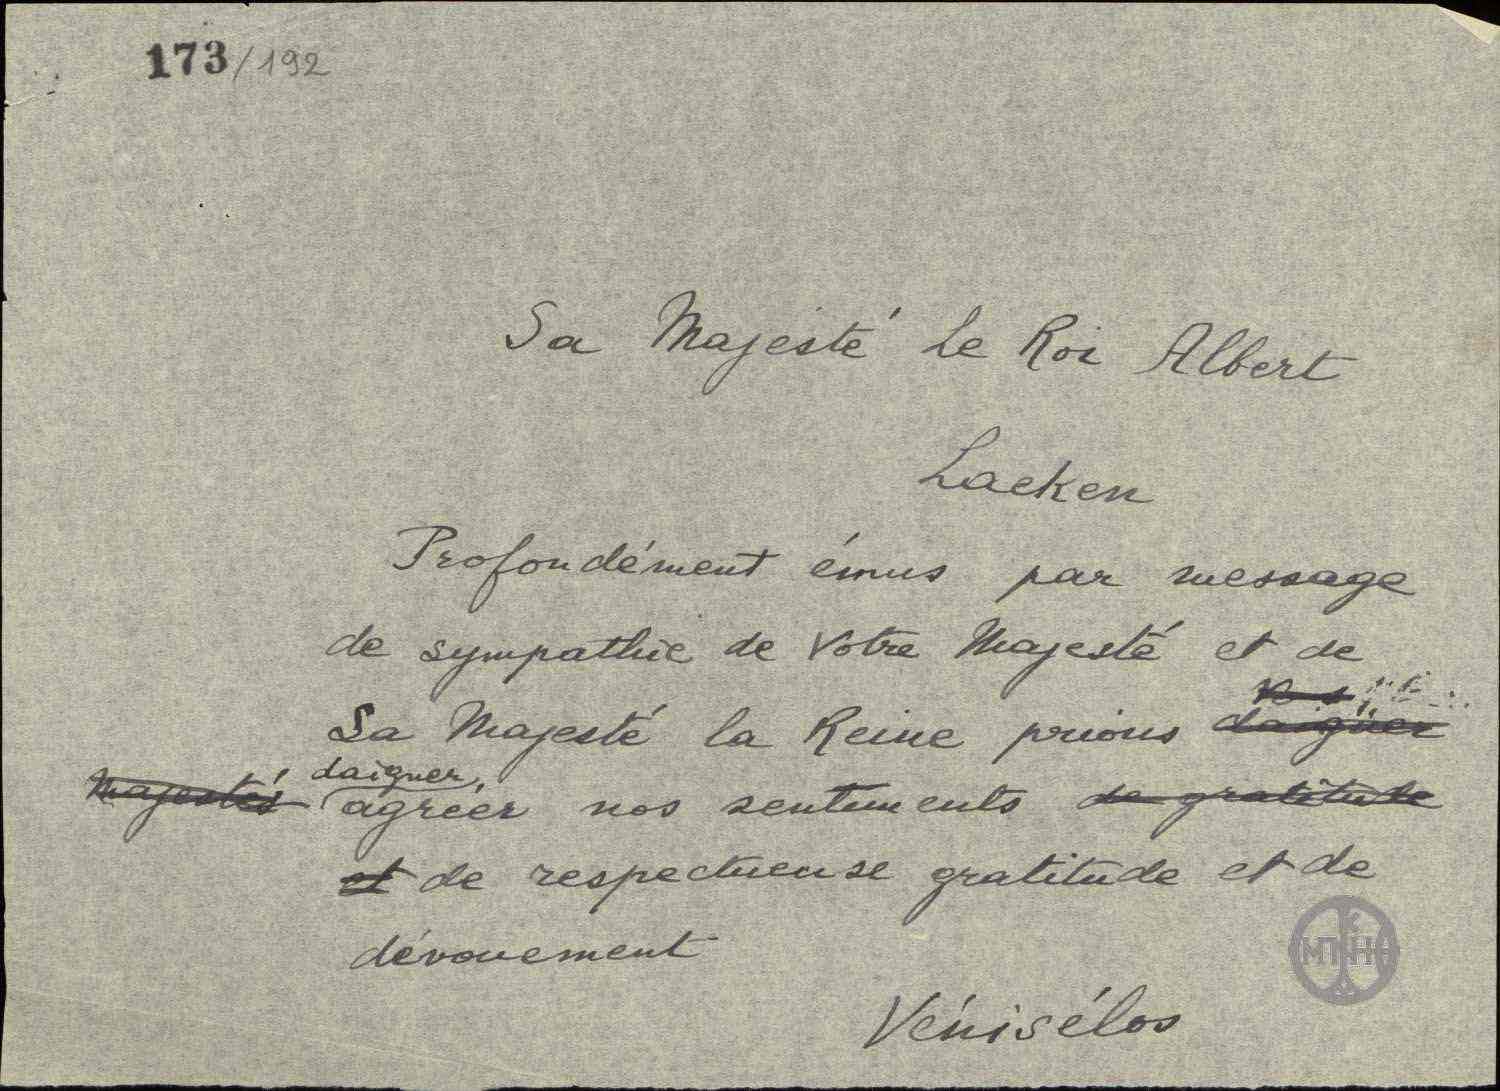 173/192
Sa Majesté le Roi Albert
Laeken
Profondément émus par message
de sympathie de Votre Majesté et de
Sa Majesté la Reine prions daigner
Majestés daigner agréer nos sentiments de gratitude
et de respectueuse gratitude et de
dévouement
Vénisélos
ΜΠΗ